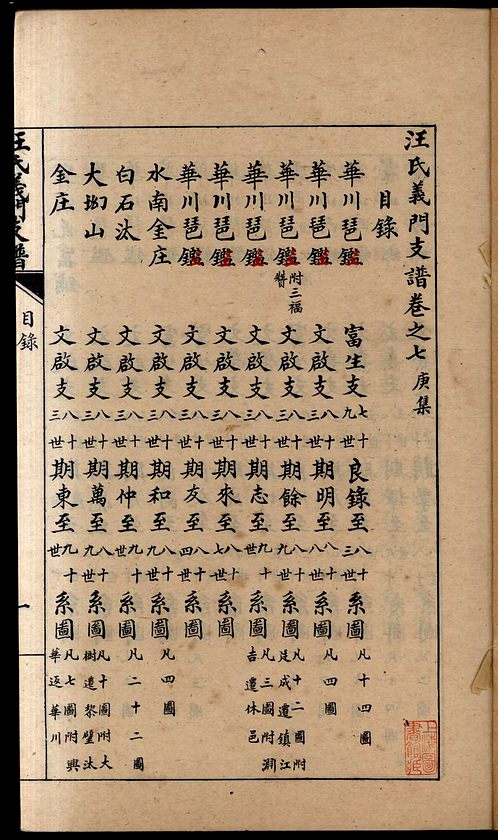 汪氏義門支譜卷之七 庚集
目錄
華川琶鑑 富生支 七十九世 良錄至 八十三世 系圖 凡十四圖
華川琶鑑 文啟支 八十三世 期明至 八十八世 系圖 凡四圖
華川琶鑑 附三福贊 文啟支 八十三世 期餘至 八十九世 系圖 凡十二圖附廷成遷鎮江
華川琶鑑 文啟支 八十三世 期志至 九十世 系圖 凡三圖附淵吉遷休邑
華川琶鑑 文啟支 八十三世 期來至 八十七世 系圖
華川琶鑑 文啟支 八十三世 期友至 八十四世 系圖
水南金庄 文啟支 八十三世 期和至 八十九世 系圖 凡四圖
白石汰 文啟支 八十三世 期仲至 九十世 系圖 凡二十二圖
大坳山 文啟支 八十三世 期萬至 八十九世 系圖 凡十圖附大樹遷黎壁汰
金庄 文啟支 八十三世 期東至 九十世 系圖 凡七圖附興華返華川
汪氏義門支譜
目錄
一
上海圖書館藏